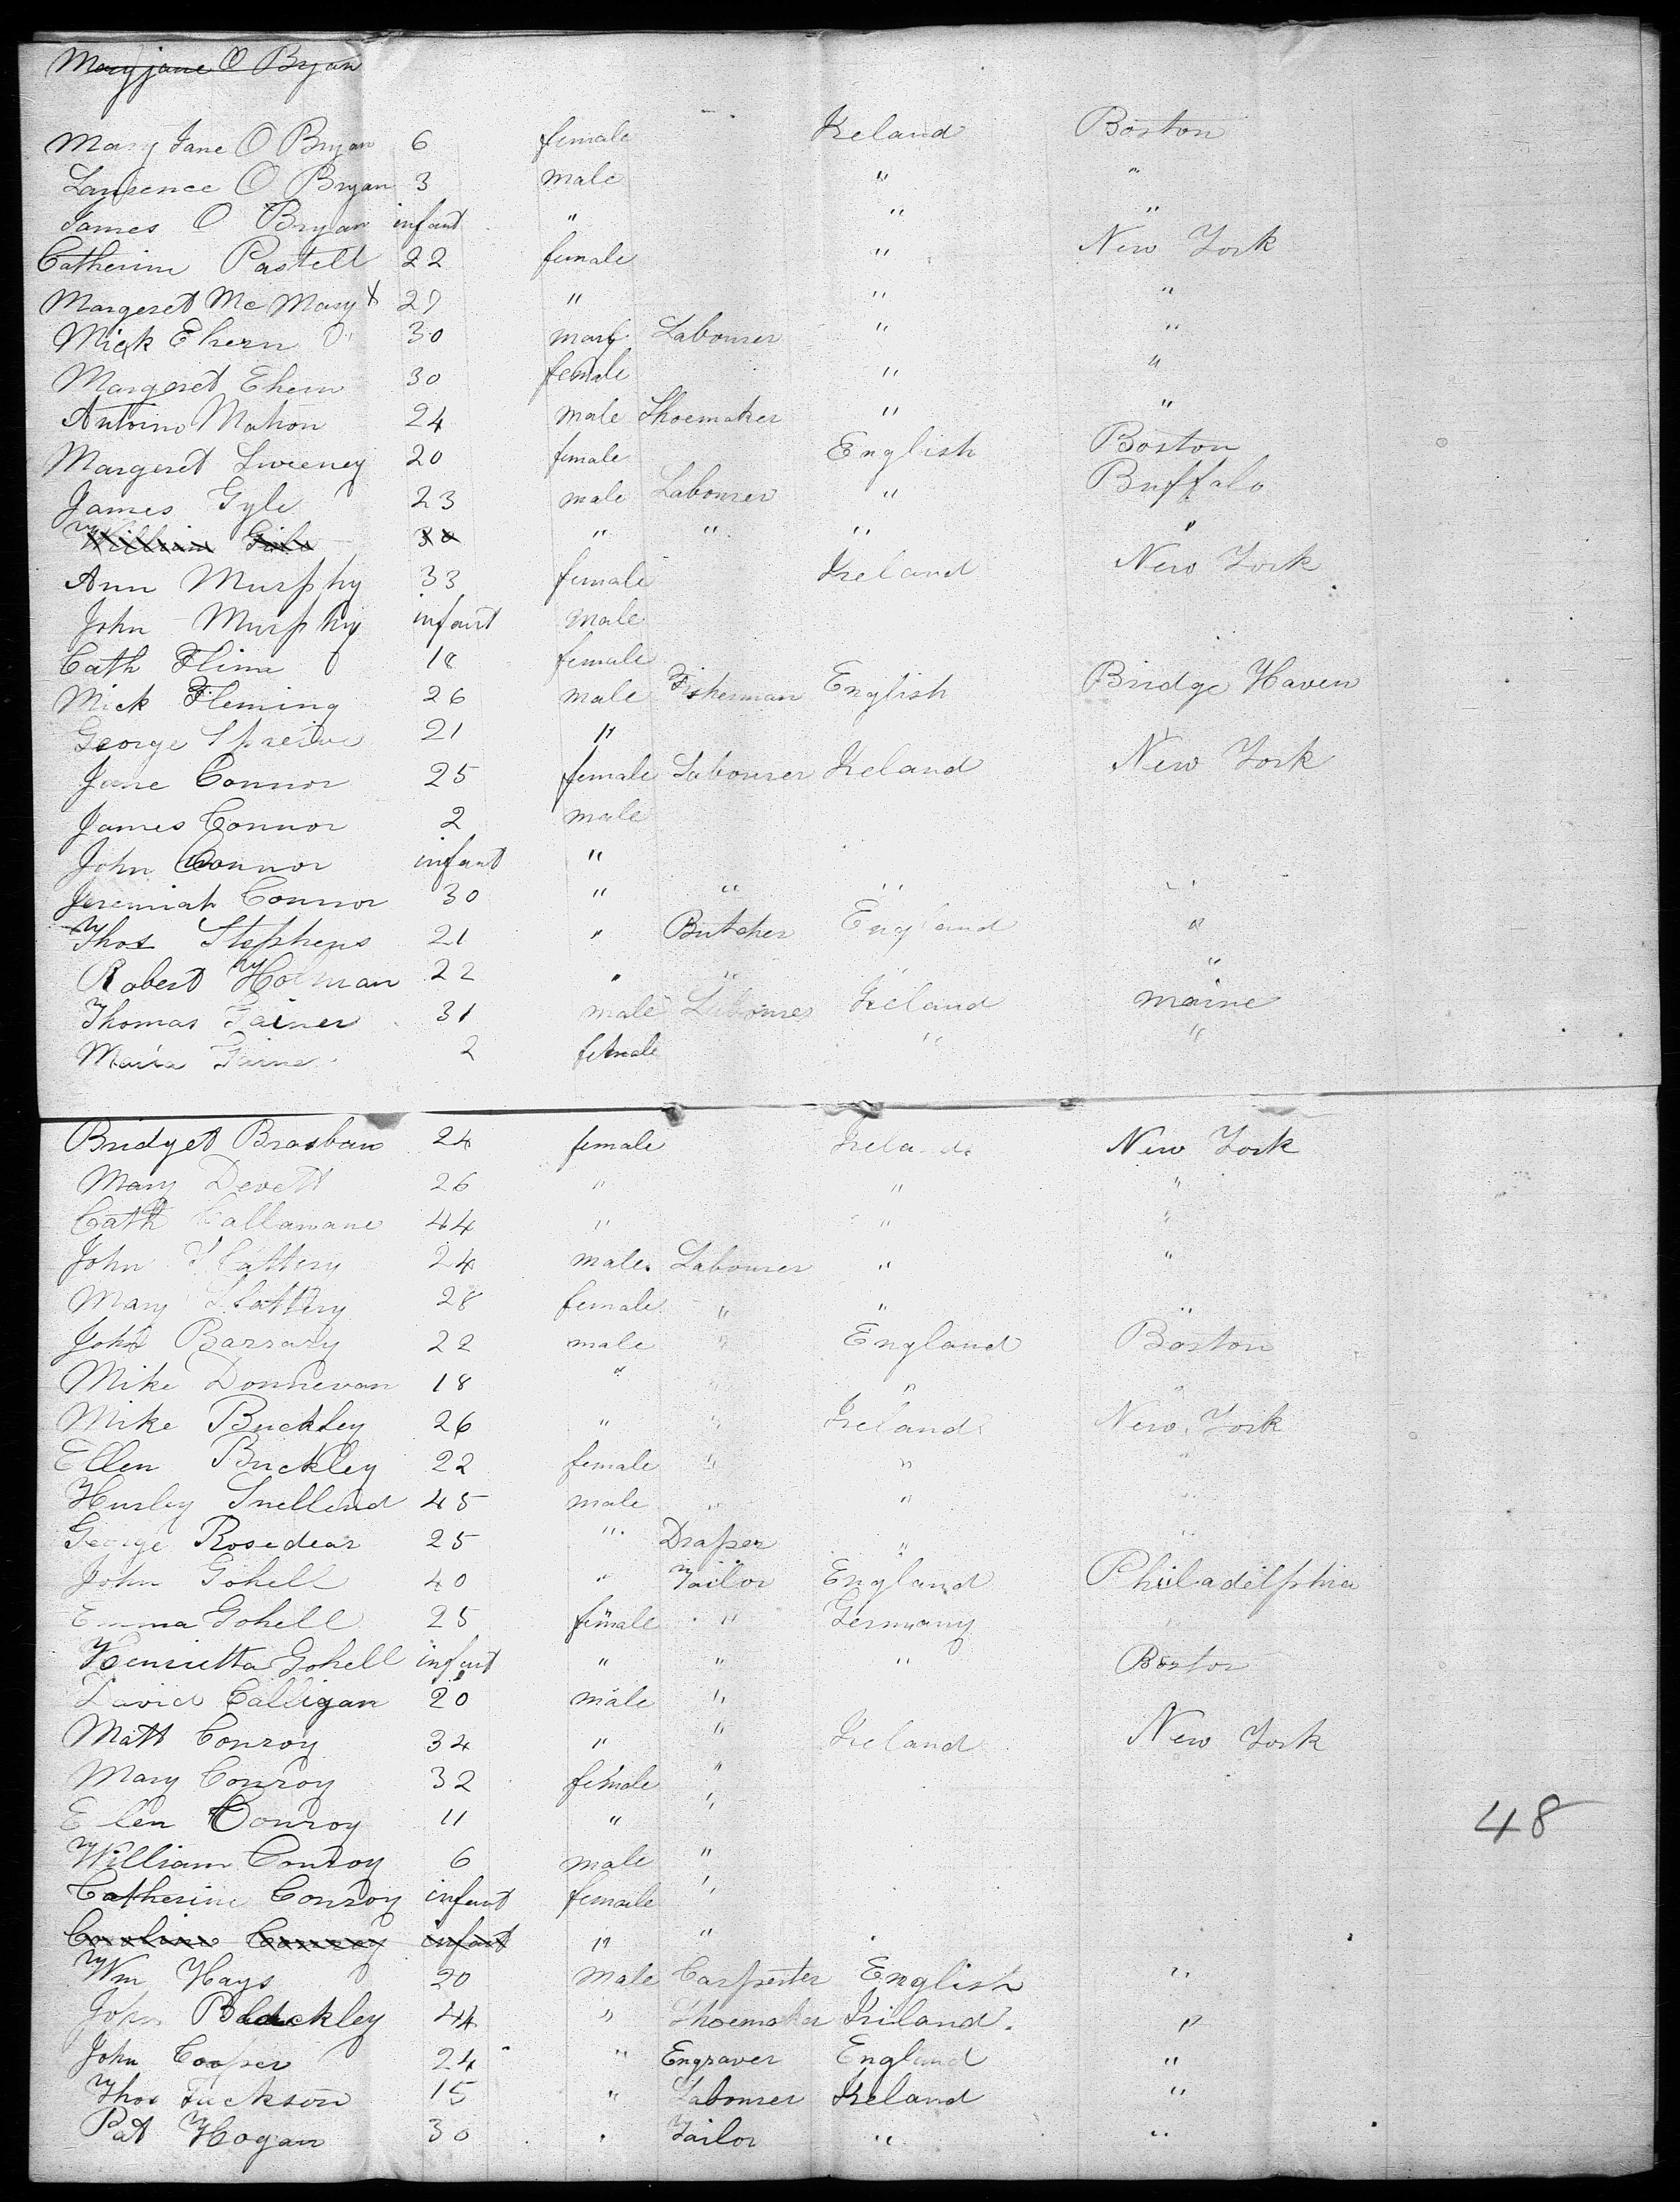 Mary jane O Bryan
Mary Jane O Bryan 6 female Ireland Boston
Laurence O Bryan 3 male " "
James O Bryan infant " " "
Catherine Pastell 22 female " New York
Margeret Mc Mary 27 " " "
Mick Ehern 30 Labourer " "
Margeret Ehern 30 female " "
Antoine Mahon 24 male Shoemaker " "
Margeret Sweeney 20 female English Boston
James Gyle 23 male Labourer " Buffalo
William 30 " " " "
Ann Murphy 33 female Ireland New York
John Murphy infant male
Cath Flinn 18 female
Mick Fleming 26 male Fisherman English Bridge Haven
George 21 "
Jane Connor 25 female Labourer Ireland New York
James Connor 2 male
John Connor infant "
Jeremiah Connor 30 " " " "
Thos Stephens 21 " Butcher England "
Robert Holman 22 " " " "
Thomas Gainer 31 male Labourer Ireland maine
Maria 2 female " "
Bridget Brosban 24 female Ireland New York
Mary Devett 26 " " "
Cath Callamane 44 " " "
John Slattery 24 male Labourer " "
Mary Slattery 28 female " " "
John Barrary 22 male " England Boston
Mike Donnevan 18 " " " "
Mike Buckley 26 " " Ireland New York
Ellen Buckley 22 female " " "
Hurley Snellend 45 male " " "
George Rosedear 25 " Draper " "
John Gohell 40 " Tailor England Philadelphia
Emma Gohell 25 female " Germany
Henrietta Gohell infant " " " Boston
David Calligan 20 male "
Matt Conroy 34 " " Ireland New York
Mary Conroy 32 female "
Ellen Conroy 11 " "
48
William Conroy 6 male "
Catherine Conroy infant female "
Caroline Conroy infant " "
Wm Hays 20 male Carpenter English "
John Blackley 44 " Shoemaker Iriland. "
John Cooper 24 " Engraver England "
Thos Jackson 15 " Labourer Ireland "
Pat Hogan 30 " Tailor " "